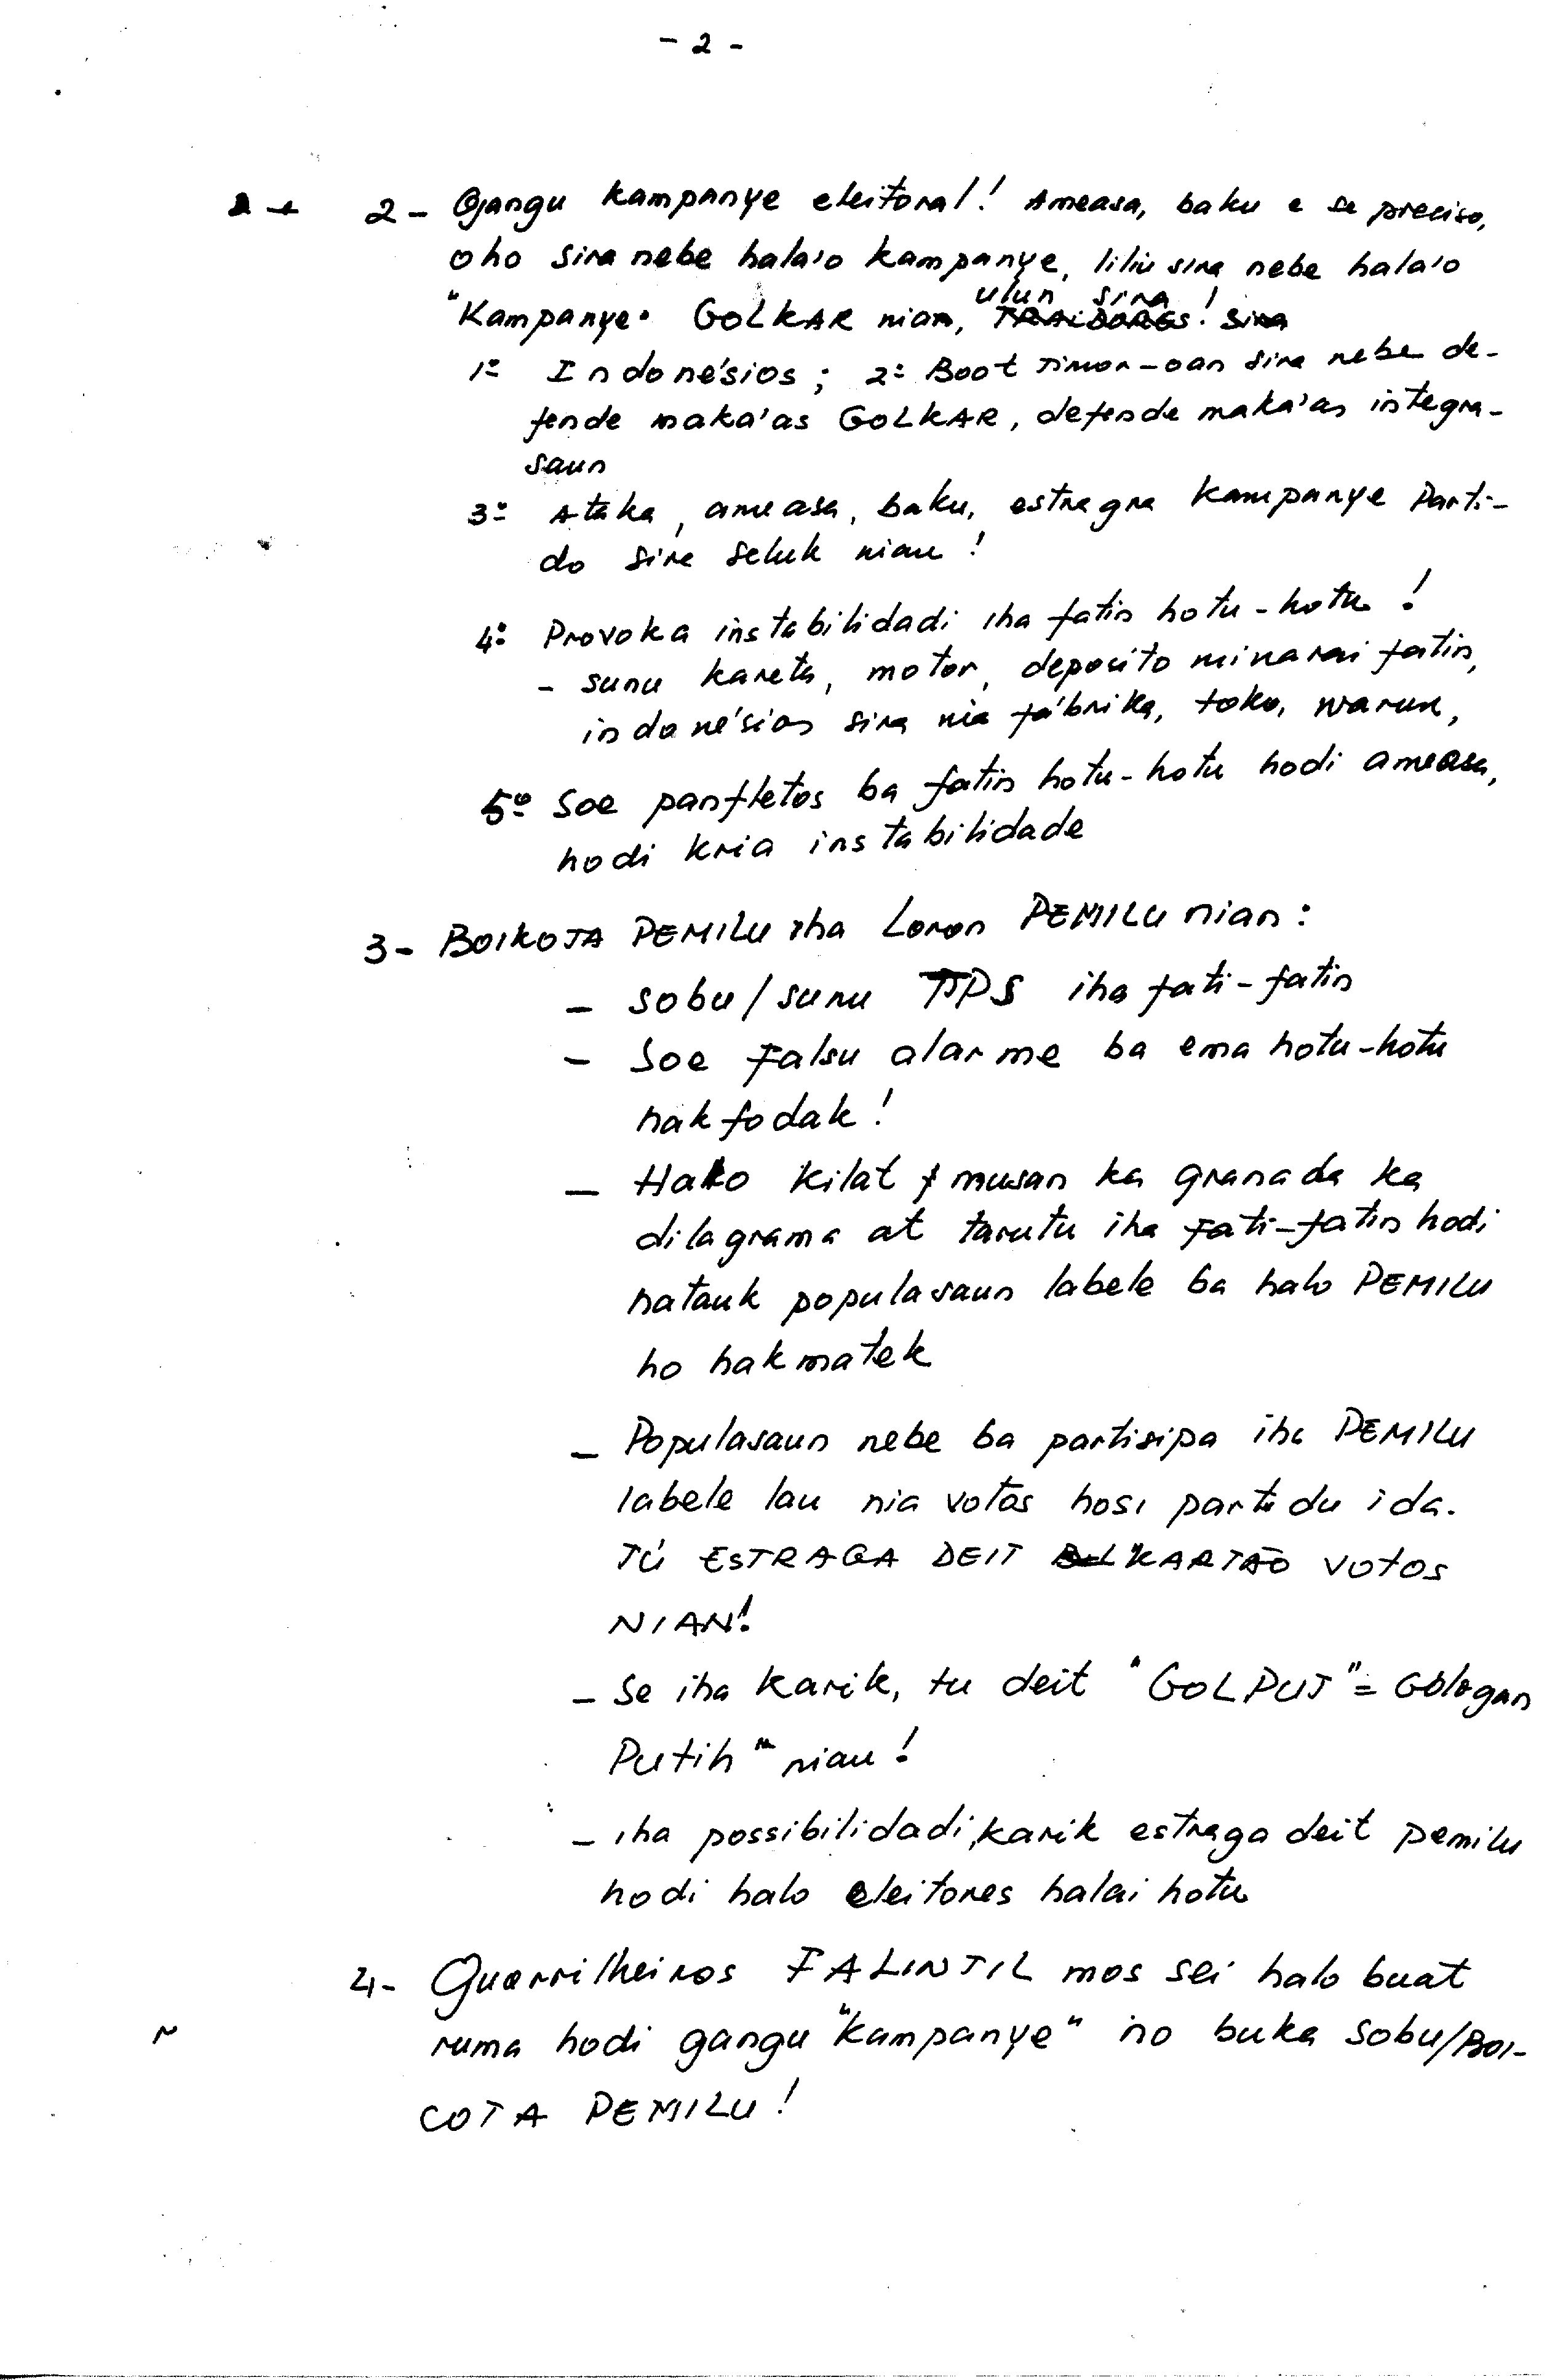 - 2 -
2 - Gangu kampanye eleitoral! Ameasa, baku e se preciso,
oho sira nebe hala'o kampanye, liliu sira nebe hala'o
"Kampanye" GOLKAR nian, ulun sira!
1º Indonésios; 2º Boot Timor-oan sira nebe de-
fende maka'as GOLKAR, defende maka'as integra-
saun
3º Ataka, ameasa, baku, estragra kampanye Parti-
do sira seluk nian!
4º Provoka instabilidadi iha fatin hotu-hotu!
- sunu kareta, motor, deposito minarai fatin,
indonésios sira nia fábrika, toko, warun,
5º Soe panfletos ba fatin hotu-hotu hodi ameasa,
hodi kria instabilidade
3- BOIKOTA PEMILU iha Loron PEMILU nian:
- sobu/sunu TPS iha fati-fatin
- Soe falsu alarme ba ema hotu-hotu
nakfodak!
- Hako kilat musan ka granada ka
dilagrama at tarutu iha fati-fatin hodi
hatauk populasaun labele ba halo PEMILU
ho hakmatek
- Populasaun nebe ba partisipa iha PEMILU
labele lau nia votos hosi partidu ida.
TÚ ESTRAGA DEIT KARTÃO VOTOS
NIAN!
- Se iha karik, tu deit "GOLPUT" = Gologan
Putih" nian!
- iha possibilidadi, karik estraga deit pemilu
hodi halo eleitores halai hotu
4- Guerrilheiros FALINTIL mos sei halo buat
ruma hodi gangu "kampanye" no buka sobu/BOI-
COTA PEMILU!